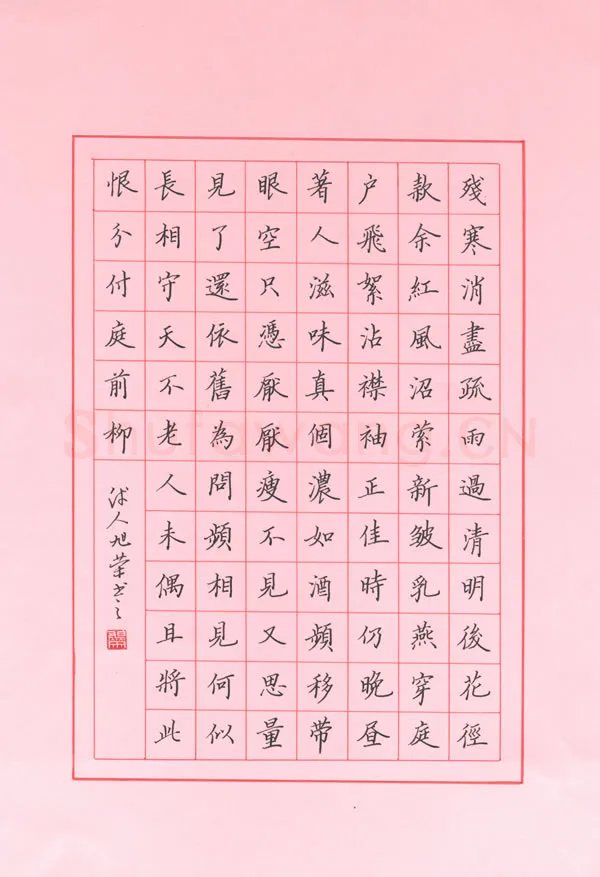 殘寒消盡疏雨過清明後花徑
款余紅風沼萦新皺乳燕穿庭
户飛絮沾襟袖正佳時仍晚昼
著人滋味真個濃如酒頻移带
眼空只憑厭厭瘦不見又思量
見了還依舊為問頻相見何似
長相守天不老人未偶且將此
恨分付庭前柳
人旭荣书之
Shufawang.CN